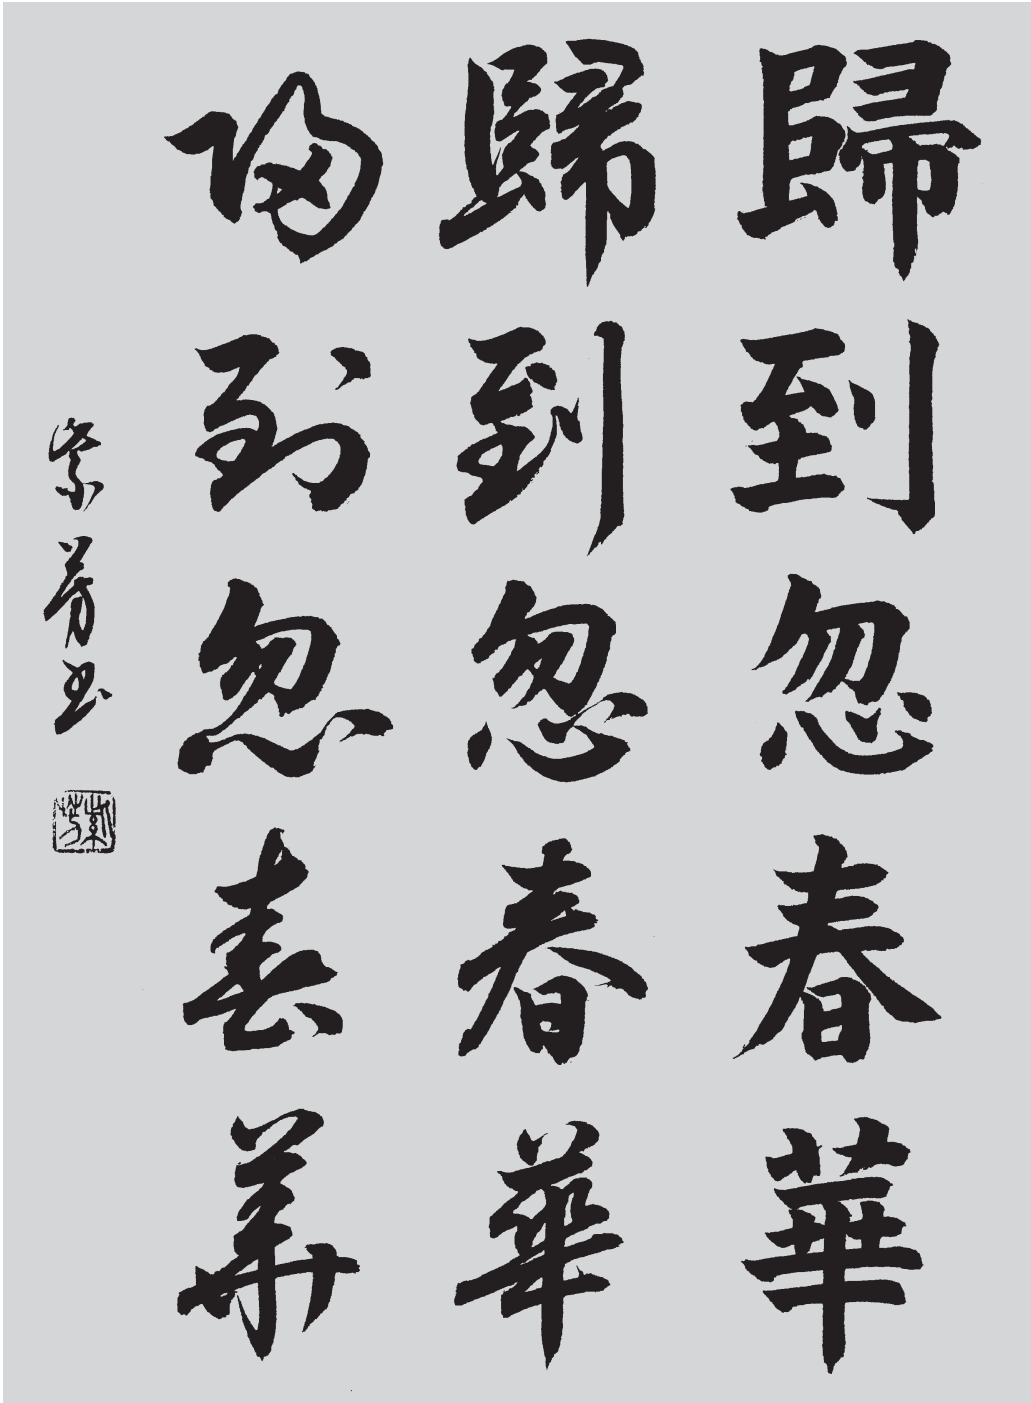 歸到忽春華
歸到忽春華
歸到忽春華
紫芳书
紫芳